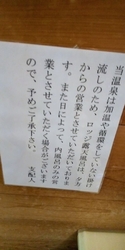 当温泉は加温や循環をしていない掛け
流しのため、ロッジ鑑大風呂は、夕方
からの営業とさせていただいております。
また日によって、内風呂のみの営
業とさせていただく場合がございます
ので、予めご了承下さい。
支配人